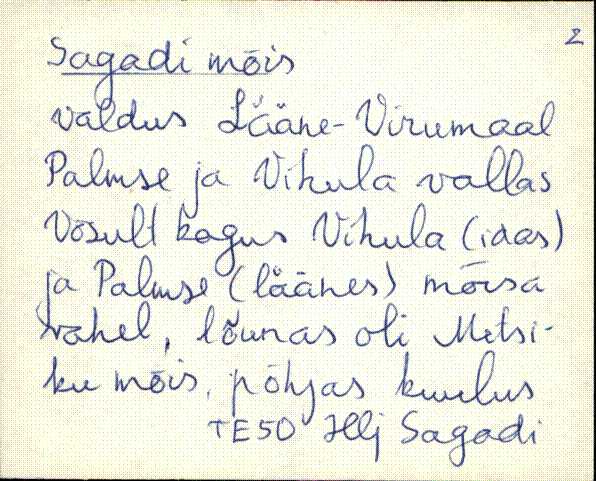 2
Sagadi mõis
valdus Lääne-Virumaal
Palmse ja Vihula vallas
Võsult kagus Vihula (idas)
ja Palmse (läänes) mõisa
vahel, lõunas oli Metsi-
ku mõis, põhjas kuulus
TE50 Hlj Sagadi